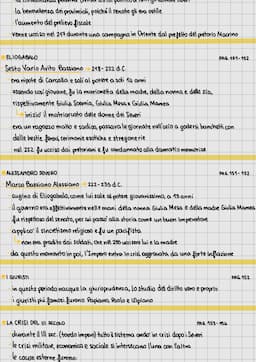 la benevolenza dei provinciali, poiché il senato gli era ostile
l'aumento del prelievo fiscale
venne ucciso nel 217 durante una campagna in Oriente dal prefetto del pretorio Macrino
ELIOGABALO PAG. 151-152
Sesto Vario Avito Bassiano → 218-222 d.C.
era nipote di Caracalla e salì al potere a soli 14 anni
essendo così giovane, fu la marionetta della madre, della nonna e della zia,
rispettivamente Giulia Soemia, Giulia Mesa e Giulia Mamea
↳ iniziò il matriarcato delle donne dei Severi
era un ragazzo molto e sadico, passava le giornate nell'ozio a godersi banchetti con
delle bestie feroci, cerimonie esotiche e stregonerie
nel 222 fu ucciso dai pretoriani e fu condannato alla damnatio memoriae
ALESSANDRO SEVERO PAG. 151-152
Marco Bassiano Alessiano → 222-235 d.C.
cugino di Eliogabalo, come lui salì al potere giovanissimo, a 13 anni
il governo era effettivamente nelle mani della nonna Giulia Mesa e della madre Giulia Mamea
fu rispettoso del senato, per cui passò alla storia come un buon imperatore
applicò il sincretismo religioso e fu un pacifista
↳ non era gradito dai soldati, che nel 235 uccisero lui e la madre
da questo momento in poi, l'Impero entra in crisi aggravata da una forte inflazione
I GIURISTI PAG. 152
in questo periodo nacque la giurisprudenza, lo studio del diritto vero e proprio
i giuristi più famosi furono Papiniano, Paolo e Ulpiano
LA CRISI DEL III SECOLO
durante il III sec. (tardo impero) tutto il sistema andò in crisi dopo i Severi
le crisi militare, economica e sociale si intrecciano l'una con l'altra
le cause esterne furono: